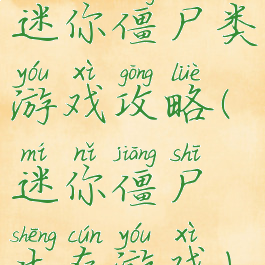 迷你僵尸类
yóu xì gōng lüè
游戏攻略(
mí nǐ jiāng shī
迷你僵尸
shēng cún yóu xì
生存游戏)